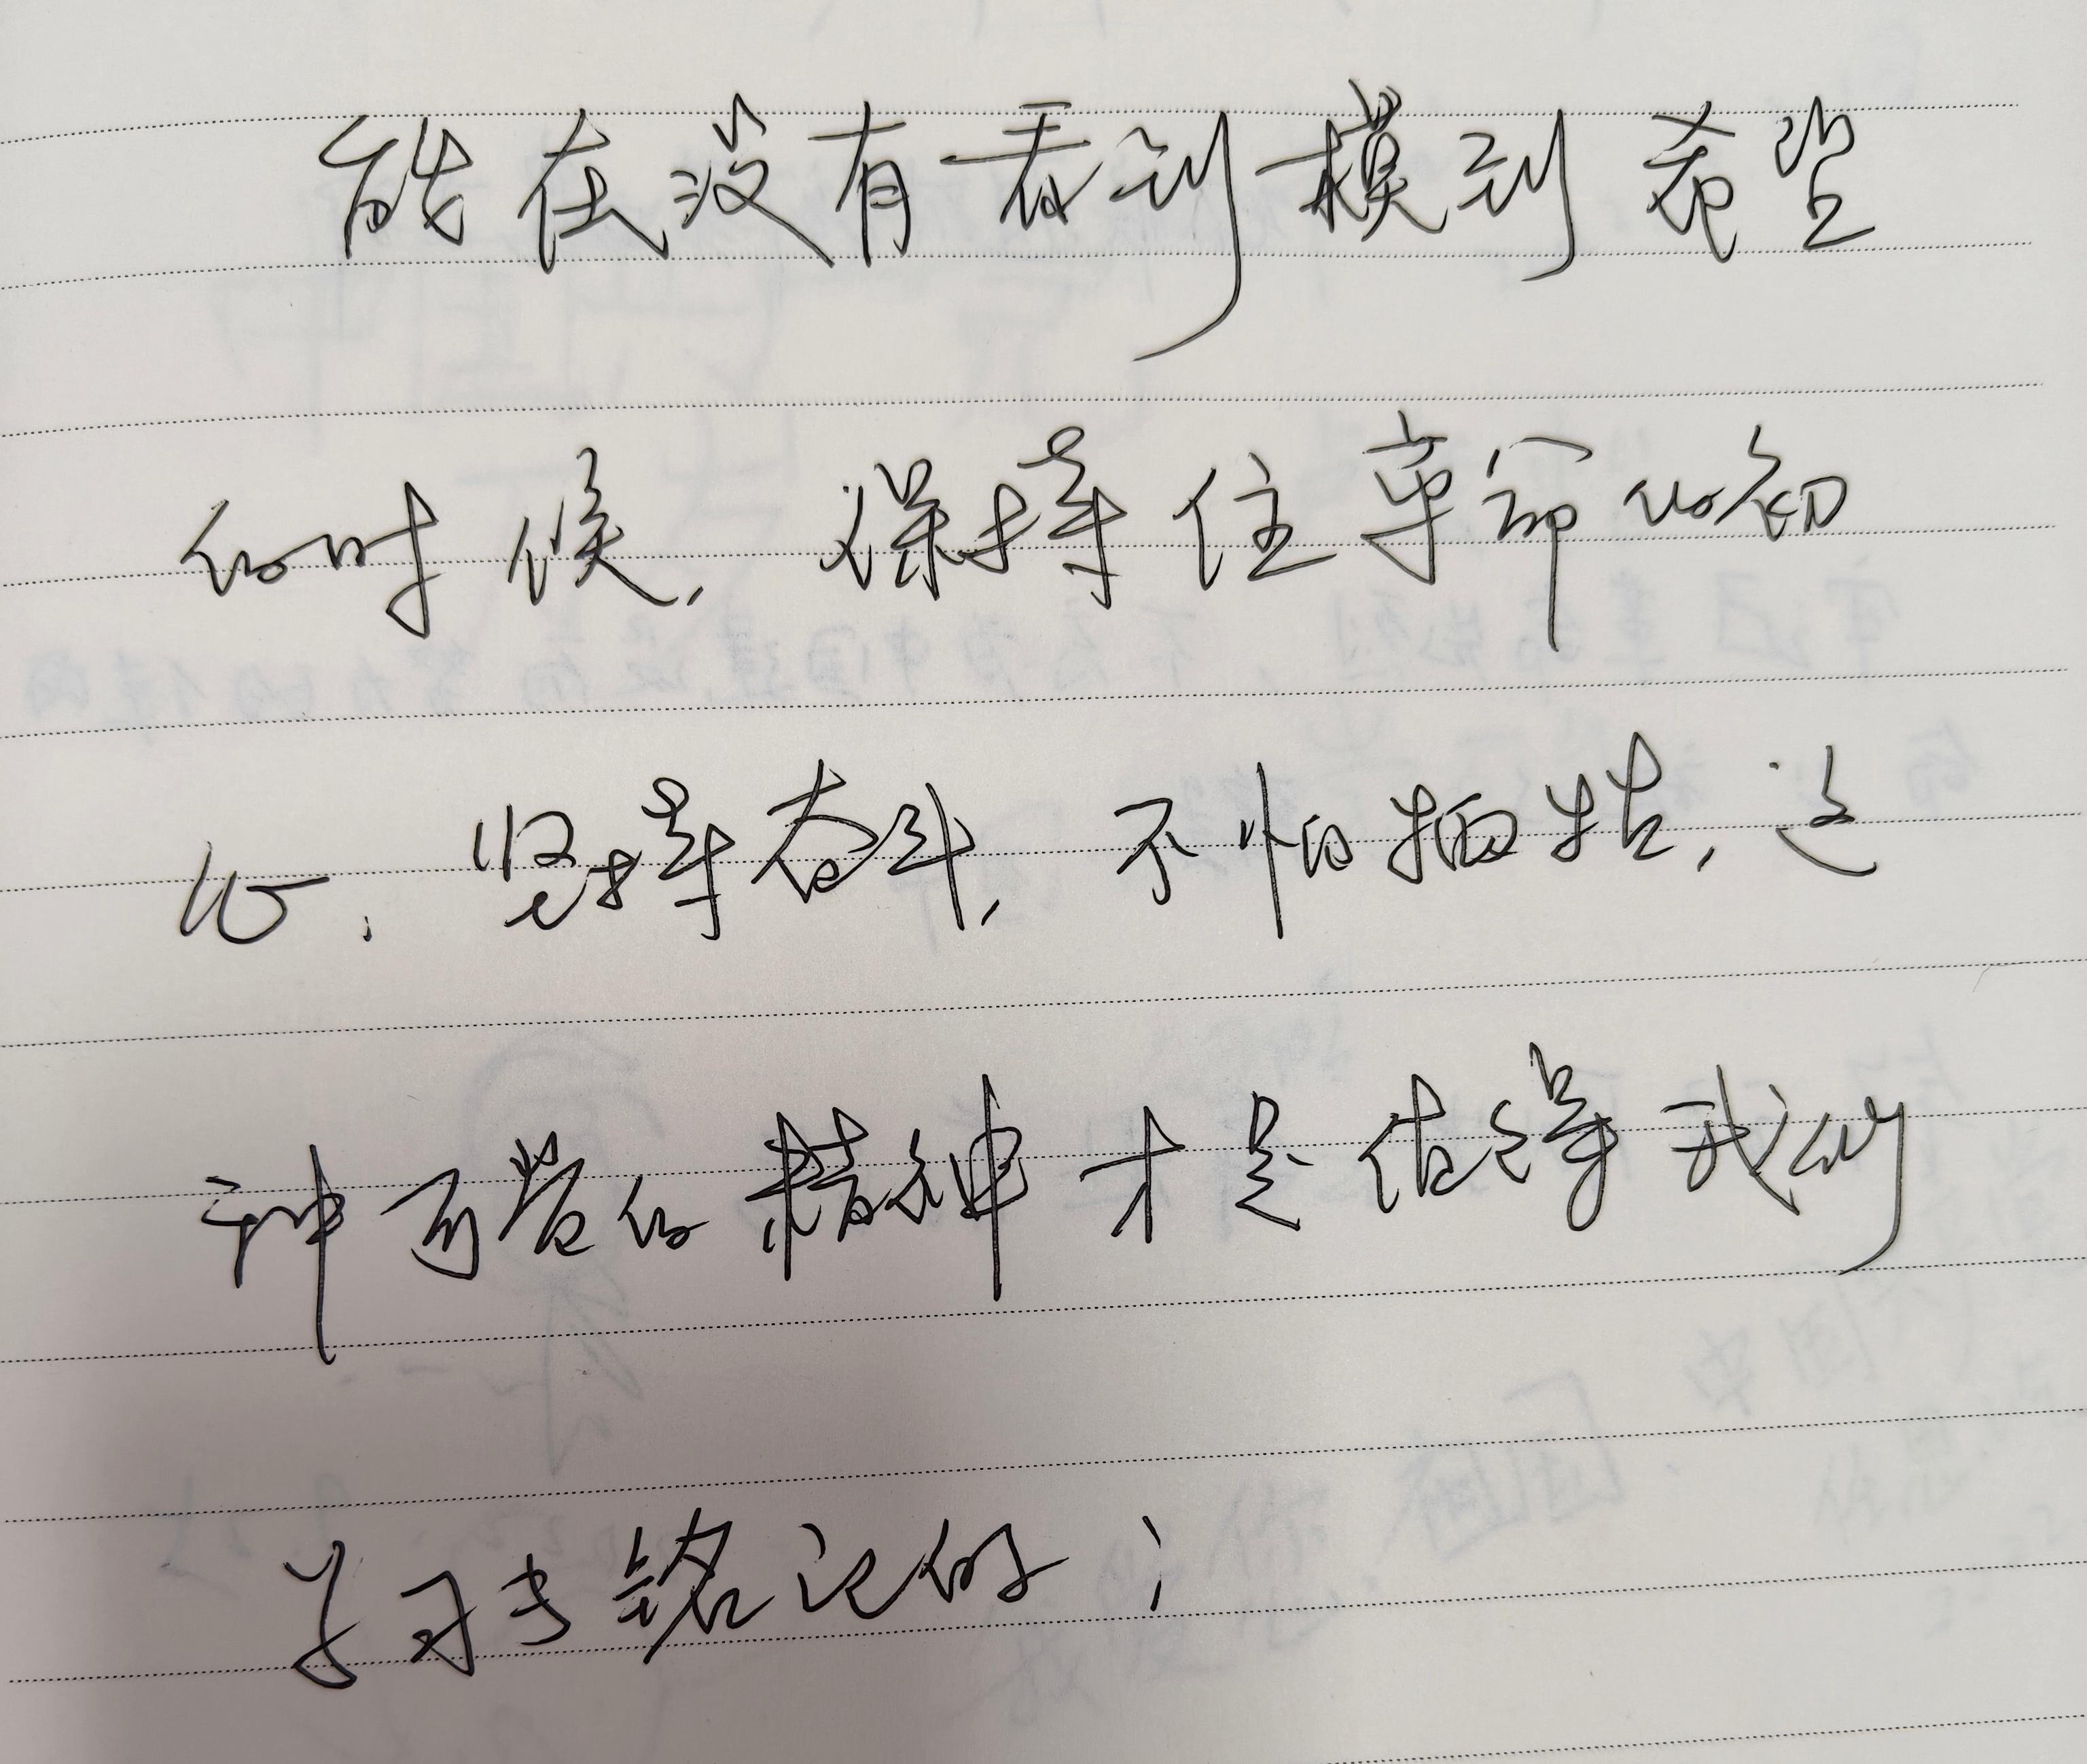 能在没有看到摸到希望
的时候，保持住革命的初
心，坚持奋斗，不怕牺牲，这
种可贵的精神才是值得我们
学习与铭记的；